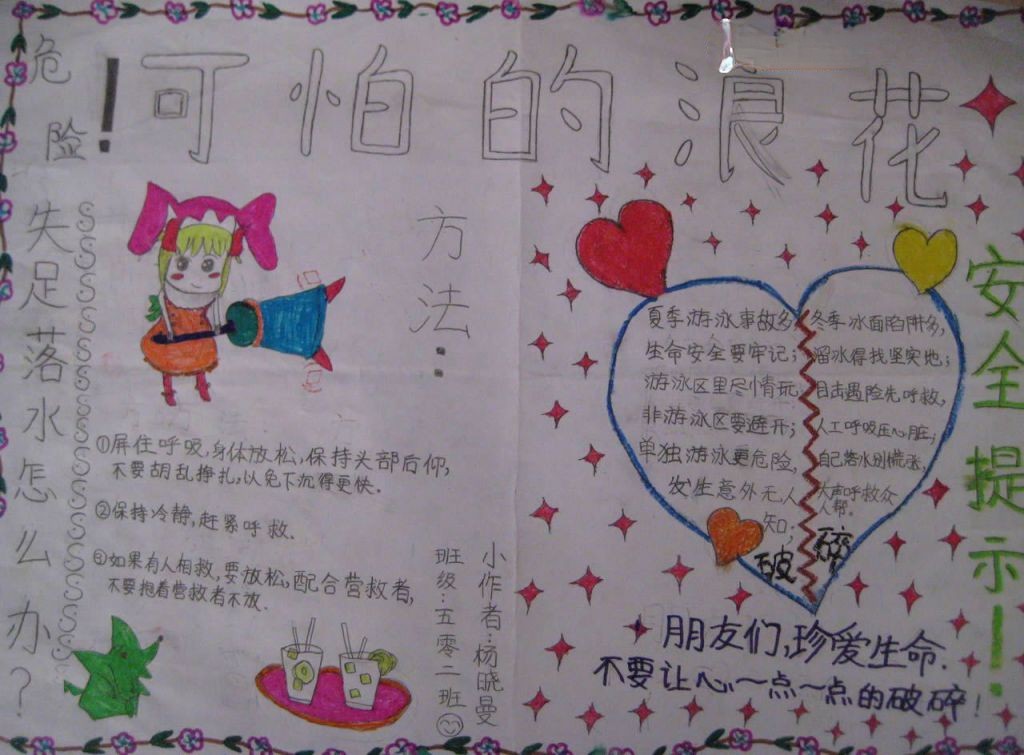 危险!
可怕的浪花
失足落水怎么办?
方法:
①屏住呼吸,身体放松,保持头部后仰,
不要胡乱挣扎,以免下沉得更快.
②保持冷静,赶紧呼救.
③如果有人相救,要放松,配合营救者,
不要抱着营救者不放.
小作者:杨晓曼
班级:五零二班
夏季游泳事故多,
生命安全要牢记;
游泳区里尽情玩,
非游泳区要避开;
单独游泳更危险,
发生意外无人
知;
冬季冰面陷阱多,
溜冰得找坚实地;
目击遇险先呼救,
人工呼吸压心脏;
自己落水别慌张,
大声呼救众
人帮.
破碎
安全提示!
朋友们,珍爱生命.
不要让心一点一点的破碎!